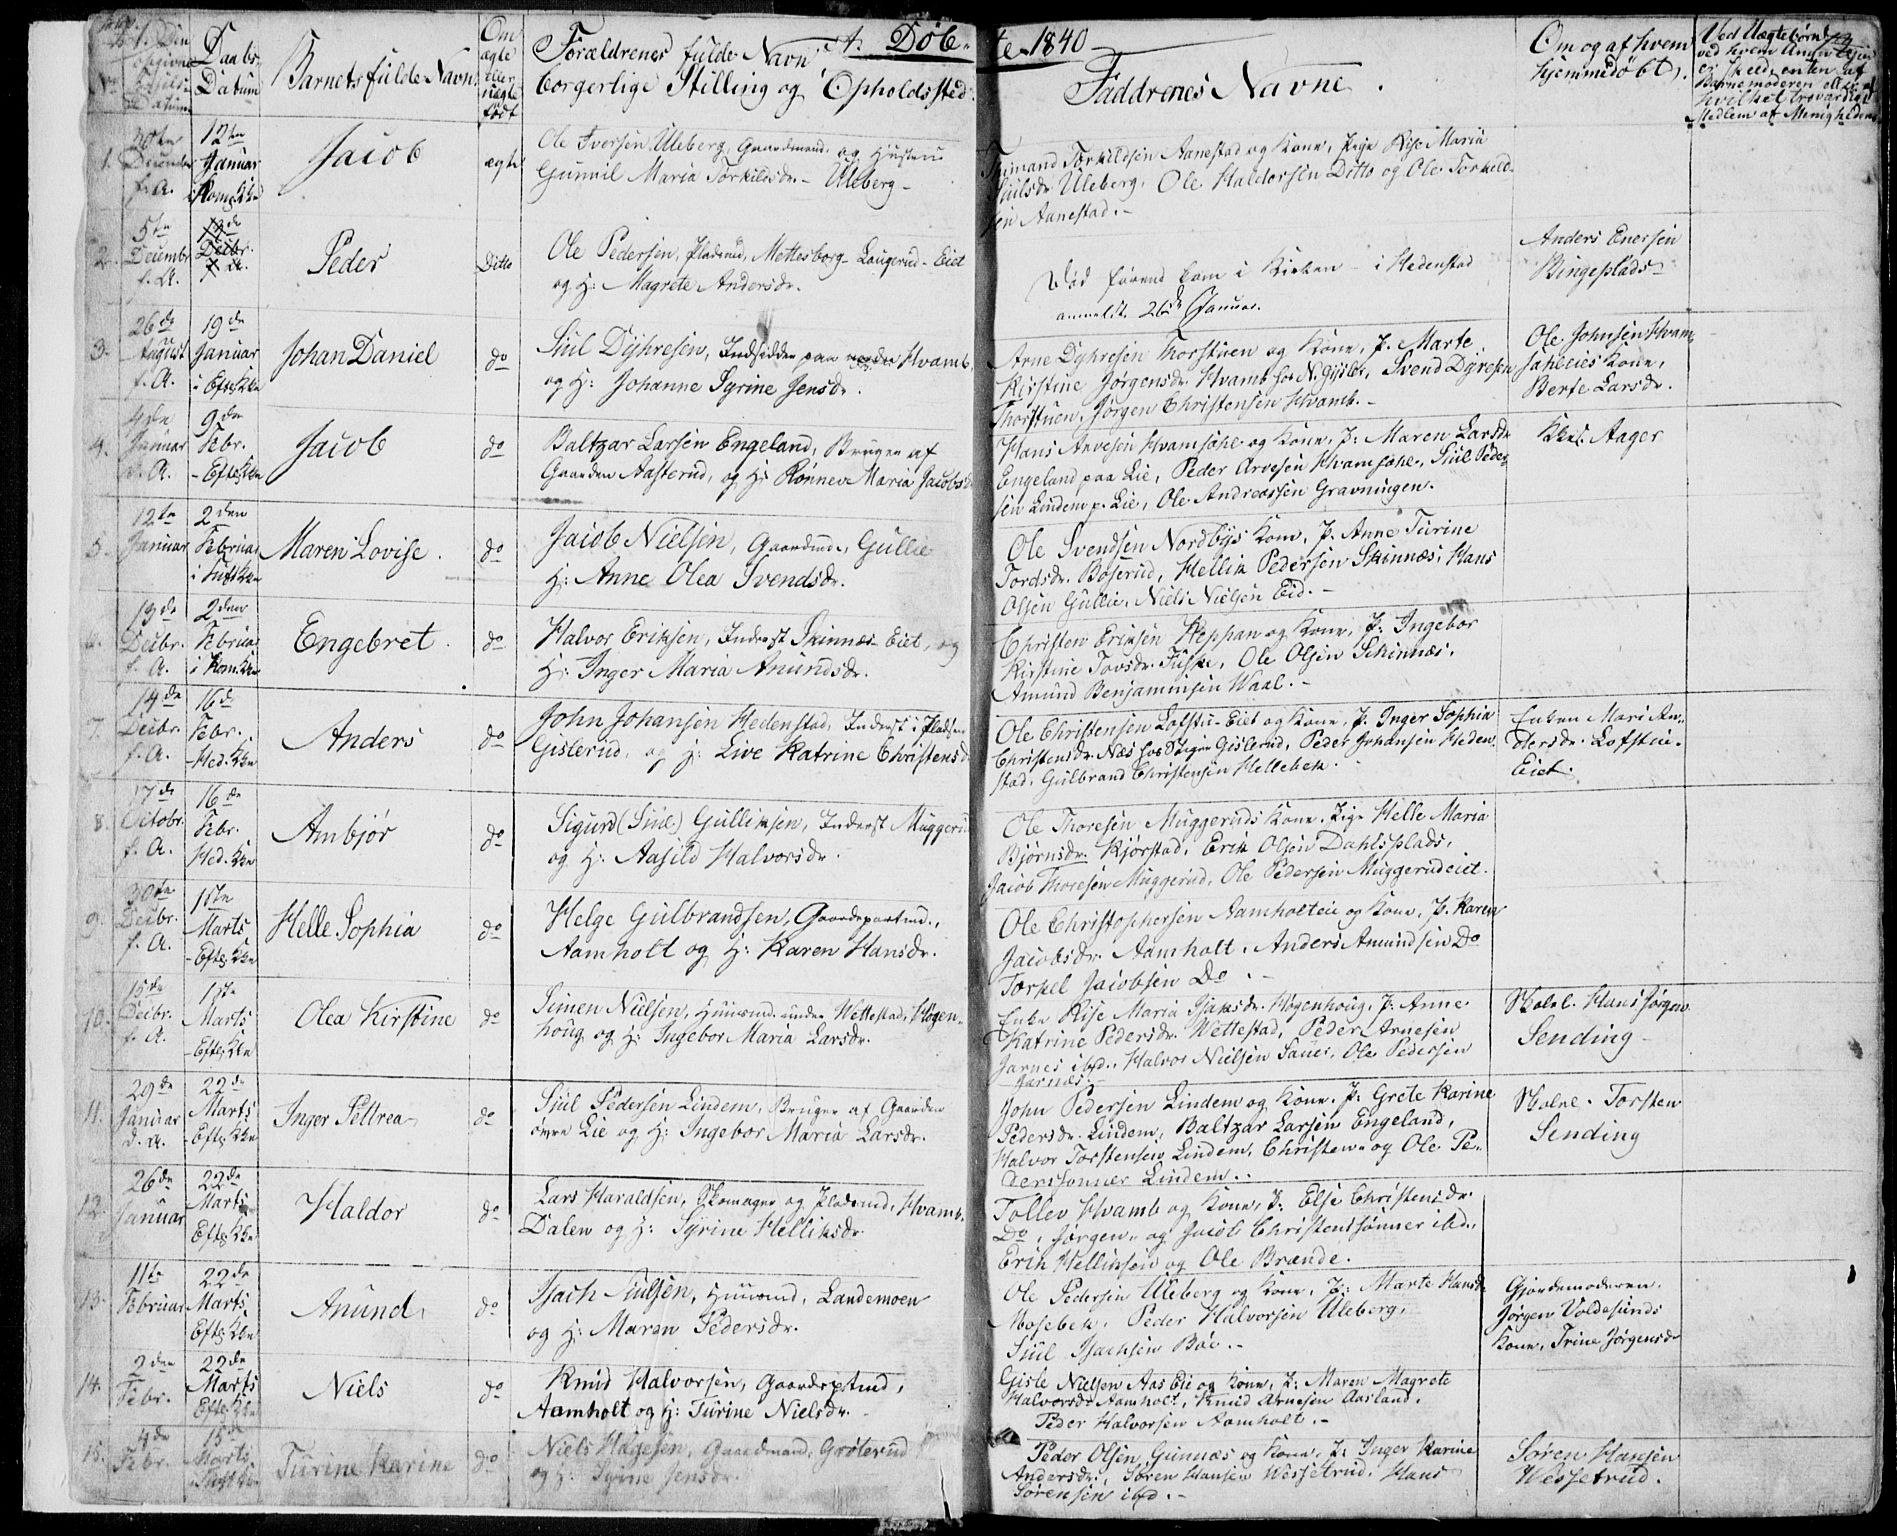 A. Døbte 1840
No
Daabs-
Datum
Barnets fulde Navn
Om
ægte
eller
uægte
født
Forældrenes fulde Navn
borgerlige Stilling og Opholdssted
Faddrenes Navne
Om og af hvem
hjemmedøbt
Ved Uægtebørn
1.
20de
December
f. A.
12te
Januar
Jacob
ægte
Ole Iversen Uleberg, Gaardmand og Hustru
Gunnil Maria Torkilsdr. - Uleberg -
Torkildsen Aanestad og Kone, Pige Rise Maria
Uleberg, Ole Haldorsen Ditto og Ole Torkild-
sen Aanestad. -
2.
5te
Decembr
f. A.
Peder
Ditto
Ole Pedersen, Pladsmd, Mettesborg - Laugerud - Eiet
og H: Magrete Andersdr.
Død førend kom i Kirken - i Hedenstad
anmeldt 26de Januar.
Anders Enersen
Bingeplads
3.
26de
August
f. A.
19de
Januar
i Eft: Kke
Johan Daniel
do
Siul Dyhresen, Indsidder paa nordre Hvamb
og H: Johanne Syrine Jensdr.
Arne Dyhresen Thorstuen og Kone, P. Marte
Kirstine Jørgensdr. Hvamb, Svend Dyresen
Thorstuen, Jørgen Christensen Hvamb. -
Ole Johnsen Hvam-
Kone,
Berte Larsdr.
4.
4de
Januar
d. A.
9de
Febr.
- Eft: Kke
Jacob
do
Baltzar Larsen Engeland, Bruger af
Gaarden Aasterud, og H: Rønnev Maria Jacobsd
Hans Arvesen Hvamsahe og Kone, P: Maren Larsdr
Engeland paa Lie, Peder Arvesen Hvamsahe, Siul Peder-
sen Lindem p. Lie, Ole Andreassen Gravningen.
Aager
5.
12te
Januar
2den
Februar
Maren Lovise.
do
Jacob Nielsen, Gaardmd., Gullie
H: Anne Olea Svendsdr.
Ole Svendsen Nordbys Kone, P. Anne Turine
Tordsdr. Boserud, Hellik Pedersen Skinnæs, Hans
Olsen Gullie, Niels Nielsen Eid. -
6.
19de
Decbr.
f. A.
2den
Februar
Engebret.
do
Halvor Eriksen, Inderst Skinnæs Eiet, og
H: Inger Maria Amundsdr.
Christen Eriksen Heppan og Kone, P: Ingebor
Kirstine Tovsdr. Fuske, Ole Olsen Schinnæs,
Amund Benjaminsen Waal. -
7.
14de
Decbr.
f. A.
16de
Febr.
Hed. Kke
Anders
do
John Johansen Hedenstad, Inderst i Pladsen
Gislerud, og H: Live Katrine Christensd
Ole Christensen Lofstu-Eiet og Kone, P. Inger Sophia
Christensdr. Næs Gislerud, Peder Johansen Heden-
stad, Gulbrand Christensen Hellebek.
Enken Mari An-
dersdr. Lofstue-
Eiet.
8.
17de
Octobr.
f. A.
16de
Febr.
Hed. Kke
Ambjør
do
Sigurd (Siul) Gulliksen, Inderst Muggerud
og H: Aasild Halvorsdr.
Ole Thoresen Muggeruds Kone, Pige Helle Maria
Bjørnsdr. Kjørstad, Erik Olsen Dahlsplads,
Jacob Thoresen Muggerud, Ole Pedersen Muggerudeiet.
9.
30te
Decbr.
f. A.
1ste
Marts
- Eft: Kke
Helle Sophia
do
Helge Gulbrandsen, Gaardepartmd.,
Aamholt og H: Karen Hansdr.
Ole Christophersen Aamholteie og Kone, P. Karen
Jacobsdr. Aamholt, Anders Amundsen Do
Torkel Jacobsen Do. -
10.
15de
Decbr.
f. A.
1ste
Marts
- Eft: Kke
Olea Kirstine
do
Simen Nielsen, Huusmd. under Wettestad, Høgen-
houg og H: Ingebor Maria Larsdr.
Enke Rise Maria Isaksdr. Høgenhoug, P. Anne
Katrine Pedersdr. Wettestad, Peder Arnesen
Jarnes ibd., Halvor Nielsen Sauer, Ole Pedersen
Jarnæs. -
Skolel. Hans Jørgen
Sending
11.
29de
Januar
d. A.
22de
Marts
Eft: Kke
Inger Petrea
do
Siul Pedersen Lindem, Bruger af Gaarden
øvre Lie og H: Ingebor Maria Larsdr.
John Pedersen Lindem og Kone, P: Grete Karine
Pedersdr. Lindem, Baltzar Larsen Engeland,
Halvor Torstensen Lindem, Christen og Ole Pe-
dersønner Lindem. -
Skolel. Torsten
Sending
12.
26de
Januar
22de
Marts
Eft: Kke
Haldor
do
Lars Haraldsen, Skomager og Pladsmd, Hvamb-
Dalen og H: Syrine Helliksdr.
Tollev Hvamb og Kone, P: Else Christensdr.
Do, Jørgen og Jacob Christenssønner ibd.,
Erik Helliksen og Ole Brænde.
13.
11te
Februar
22de
Marts
Eft: Kke
Anund
do
Isach Siulsen, Huusmd, Landemoen
og H: Maren Pedersdr.
Ole Pedersen Uleberg og Kone, P: Marte Hansd
Mosebek, Peder Halvorsen Uleberg,
Siul Isachsen Bøe. -
Gjordemoderen.
Jørgen Voldesunds
Kone, Trine Jørgensdr
14.
2den
Febr.
22de
Marts
Eft: Kke
Niels
do
Knud Halvorsen, Gaardeptmd,
Aamholt og H: Turine Nielsdr. -
Gisle Nielsen Aas Eie og Kone, P: Maren Magrete
Halvorsdr Aamholt, Knud Arnesen Aasland,
Peder Halvorsen Aamholt. -
15.
4de
Febr.
15de
Marts
Turine Karine
do
Niels Hagesen, Gaardmand, Grøterud
og H: Syrine Jensdr.
Peder Olsen Gunnæs og Kone, P: Inger Karine
Andersdr., Søren Hansen Wessetrud, Hans
Sørensen ibd. -
Søren Hansen
Wessetrud.